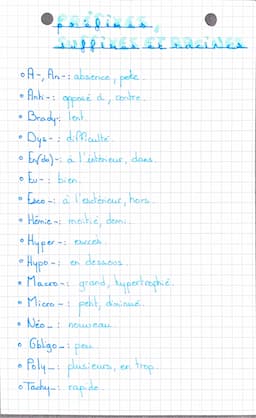 préfixes,
suffixes et racines
A-, An-: absence, perte.
Anti-: opposé à, contre.
Brady-: lent
Dys-: difficulté
En(do)-: à l'intérieur, dans.
Eu-: bien.
Exo-: à l'extérieur, hors.
Hémie-: moitié, demi.
Hyper-: excès
Hypo-: en dessous.
Macro-: grand, hypertrophié.
Micro-: petit, diminué.
Néo-: nouveau.
Obligo-: peu
Poly-: plusieurs, en trop.
Tachy-: rapide.